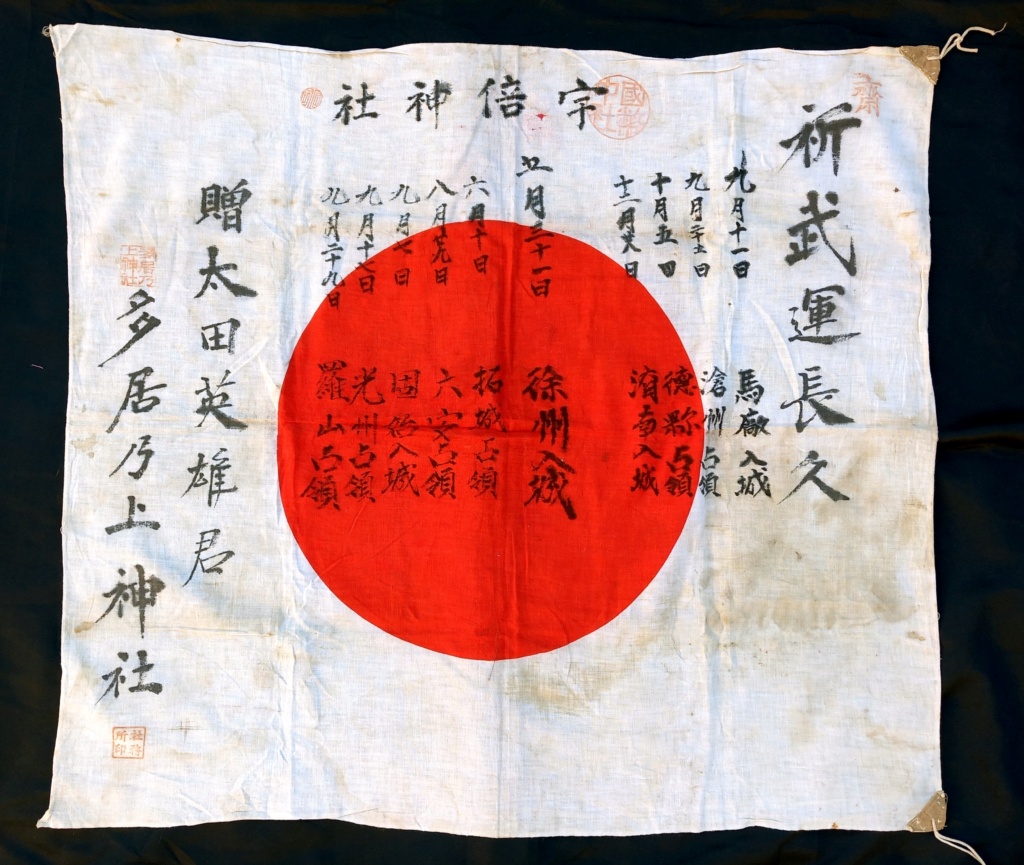 宇倍神社
國幣中社
祈武運長久
九月十一日 馬廠入城
滄州占領
十月五日 德縣占領
濟南入城
徐州入城
六月十日 拓城占領
八月廿九日 六安占領
九月七日 固始入城
九月十七日 光州占領
九月二十九日 羅山占領
贈太田英雄君
多居乃上神社
社務所印